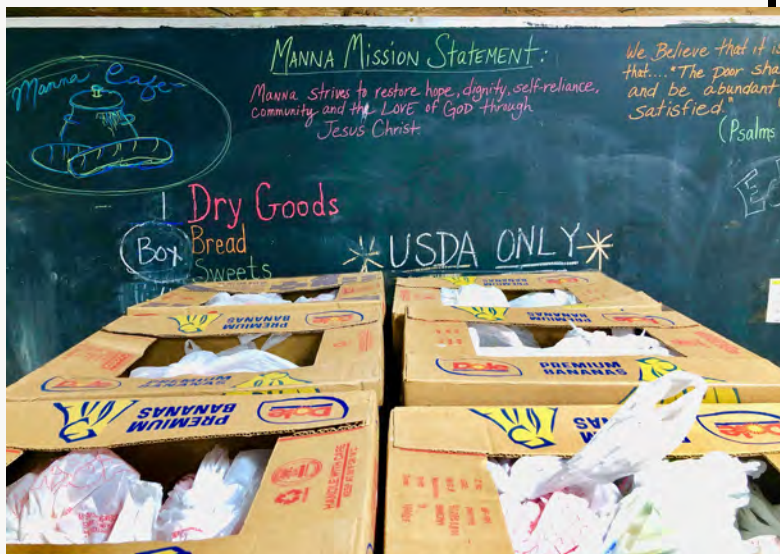 Manna Cafe
MANNA MISSION STATEMENT:
Manna strives to restore hope, dignity, self-reliance,
community and the LOVE of GOD through
Jesus Christ.
We Believe that it is
that...."The poor sha
and be abundant
satisfied."
(Psalms
1 Dry Goods
Box Bread
Sweets
USDA ONLY
PREMIUM
BANANAS
PREMIUM
BANANAS
Dole
PREMIUM
BANANAS
Dole
Dole
PREMIUM
BANANAS
PREMIUM
BANANAS
Dole
HANDLE WITH CARE
PREMIUM
BANANAS
Dole